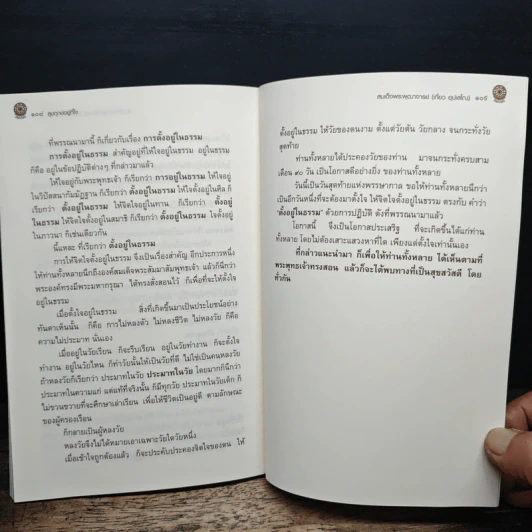 ๑๐๔ คุณฤๅอยู่ที่ใจ
ที่พรรณนามานี้ ก็เกี่ยวกับเรื่อง การตั้งอยู่ในธรรม
การตั้งอยู่ในธรรม สำคัญอยู่ที่ให้ใจอยู่ในธรรม อยู่ในธรรม
ก็คือ อยู่ในข้อปฏิบัติต่างๆ ที่กล่าวมาแล้ว
ให้ใจอยู่กับพระพุทธเจ้า ก็เรียกว่า การอยู่ในธรรม ให้ใจอยู่
ในวิปัสสนากัมมัฏฐาน ก็เรียกว่า ตั้งอยู่ในธรรม ให้ใจตั้งอยู่ในศีล ก็
เรียกว่า ตั้งอยู่ในธรรม ให้จิตใจอยู่ในทาน ก็เรียกว่า ตั้งอยู่
ในธรรม ให้จิตใจตั้งอยู่ในสมาธิ ก็เรียกว่า ตั้งอยู่ในธรรม ใจตั้งอยู่
ในภาวนา ก็เช่นเดียวกัน
นี้แหละ ที่เรียกว่า ตั้งอยู่ในธรรม
การให้จิตใจตั้งอยู่ในธรรม จึงเป็นเรื่องสำคัญ อีกประการหนึ่ง
ให้ท่านทั้งหลายนึกถึงองค์สมเด็จพระสัมมาสัมพุทธเจ้า แล้วก็นึกว่า
พระองค์ทรงมีพระมหากรุณา ได้ทรงสั่งสอนไว้ ก็เพื่อที่จะให้ตั้งใจ
อยู่ในธรรม
เมื่อตั้งใจอยู่ในธรรม สิ่งที่เกิดขึ้นมาเป็นประโยชน์อย่าง
ทันตาเห็นนั้น ก็คือ การไม่หลงตัว ไม่หลงชีวิต ไม่หลงวัย ก็คือ
ความไม่ประมาท นั่นเอง
เมื่ออยู่ในวัยเรียน ก็จะรีบเรียน อยู่ในวัยทำงาน ก็จะตั้งใจ
ทำงาน อยู่ในวัยไหน ก็ทำวัยนั้นให้เป็นวัยที่ดี ไม่ใช่เป็นคนหลงวัย
ถ้าหลงวัยก็เรียกว่า ประมาทในวัย ประมาทในวัย โดยมากก็นึกว่า
ประมาทในความแก่ แต่แท้ที่จริงนั้น ก็มีทุกวัย ประมาทในวัยเด็ก ก็
ไม่ขวนขวายที่จะศึกษาเล่าเรียน เพื่อให้ชีวิตเป็นอยู่ดี ตามลักษณะ
ของผู้ครองเรือน
ก็กลายเป็นผู้หลงวัย
หลงวัยจึงไม่ได้หมายเอาเฉพาะวัยใดวัยหนึ่ง
เมื่อเข้าใจถูกต้องแล้ว ก็จะประคับประคองจิตใจของตน ให้
สมเด็จพระพุฒาจารย์ (เกี่ยว อุปเสโณ) ๑๐๕
ตั้งอยู่ในธรรม ให้วัยของตนงาม ตั้งแต่วัยต้น วัยกลาง จนกระทั่งวัย
สุดท้าย
ท่านทั้งหลายได้ประคองวัยของท่าน มาจนกระทั่งครบสาม
เดือน ๙๐ วัน เป็นโอกาสดีอย่างยิ่ง ของท่านทั้งหลาย
วันนี้เป็นวันสุดท้ายแห่งพรรษากาล ขอให้ท่านทั้งหลายนึกว่า
เป็นอีกวันหนึ่งที่จะต้องมาตั้งใจ ให้จิตใจอยู่ในธรรม ตรงกับ คำว่า
“ตั้งอยู่ในธรรม” ด้วยการปฏิบัติ ดังที่พรรณนามาแล้ว
โอกาสนี้ จึงเป็นโอกาสประเสริฐ ที่จะเกิดขึ้นได้แก่ท่าน
ทั้งหลาย โดยไม่ต้องเสาะแสวงหาที่ใด เพียงแต่ตั้งใจเท่านั้นเอง
ที่กล่าวแนะนำมา ก็เพื่อให้ท่านทั้งหลาย ได้เห็นตามที่
พระพุทธเจ้าทรงสอน แล้วก็จะได้พบทางที่เป็นสุขสวัสดี โดย
ทั่วกัน